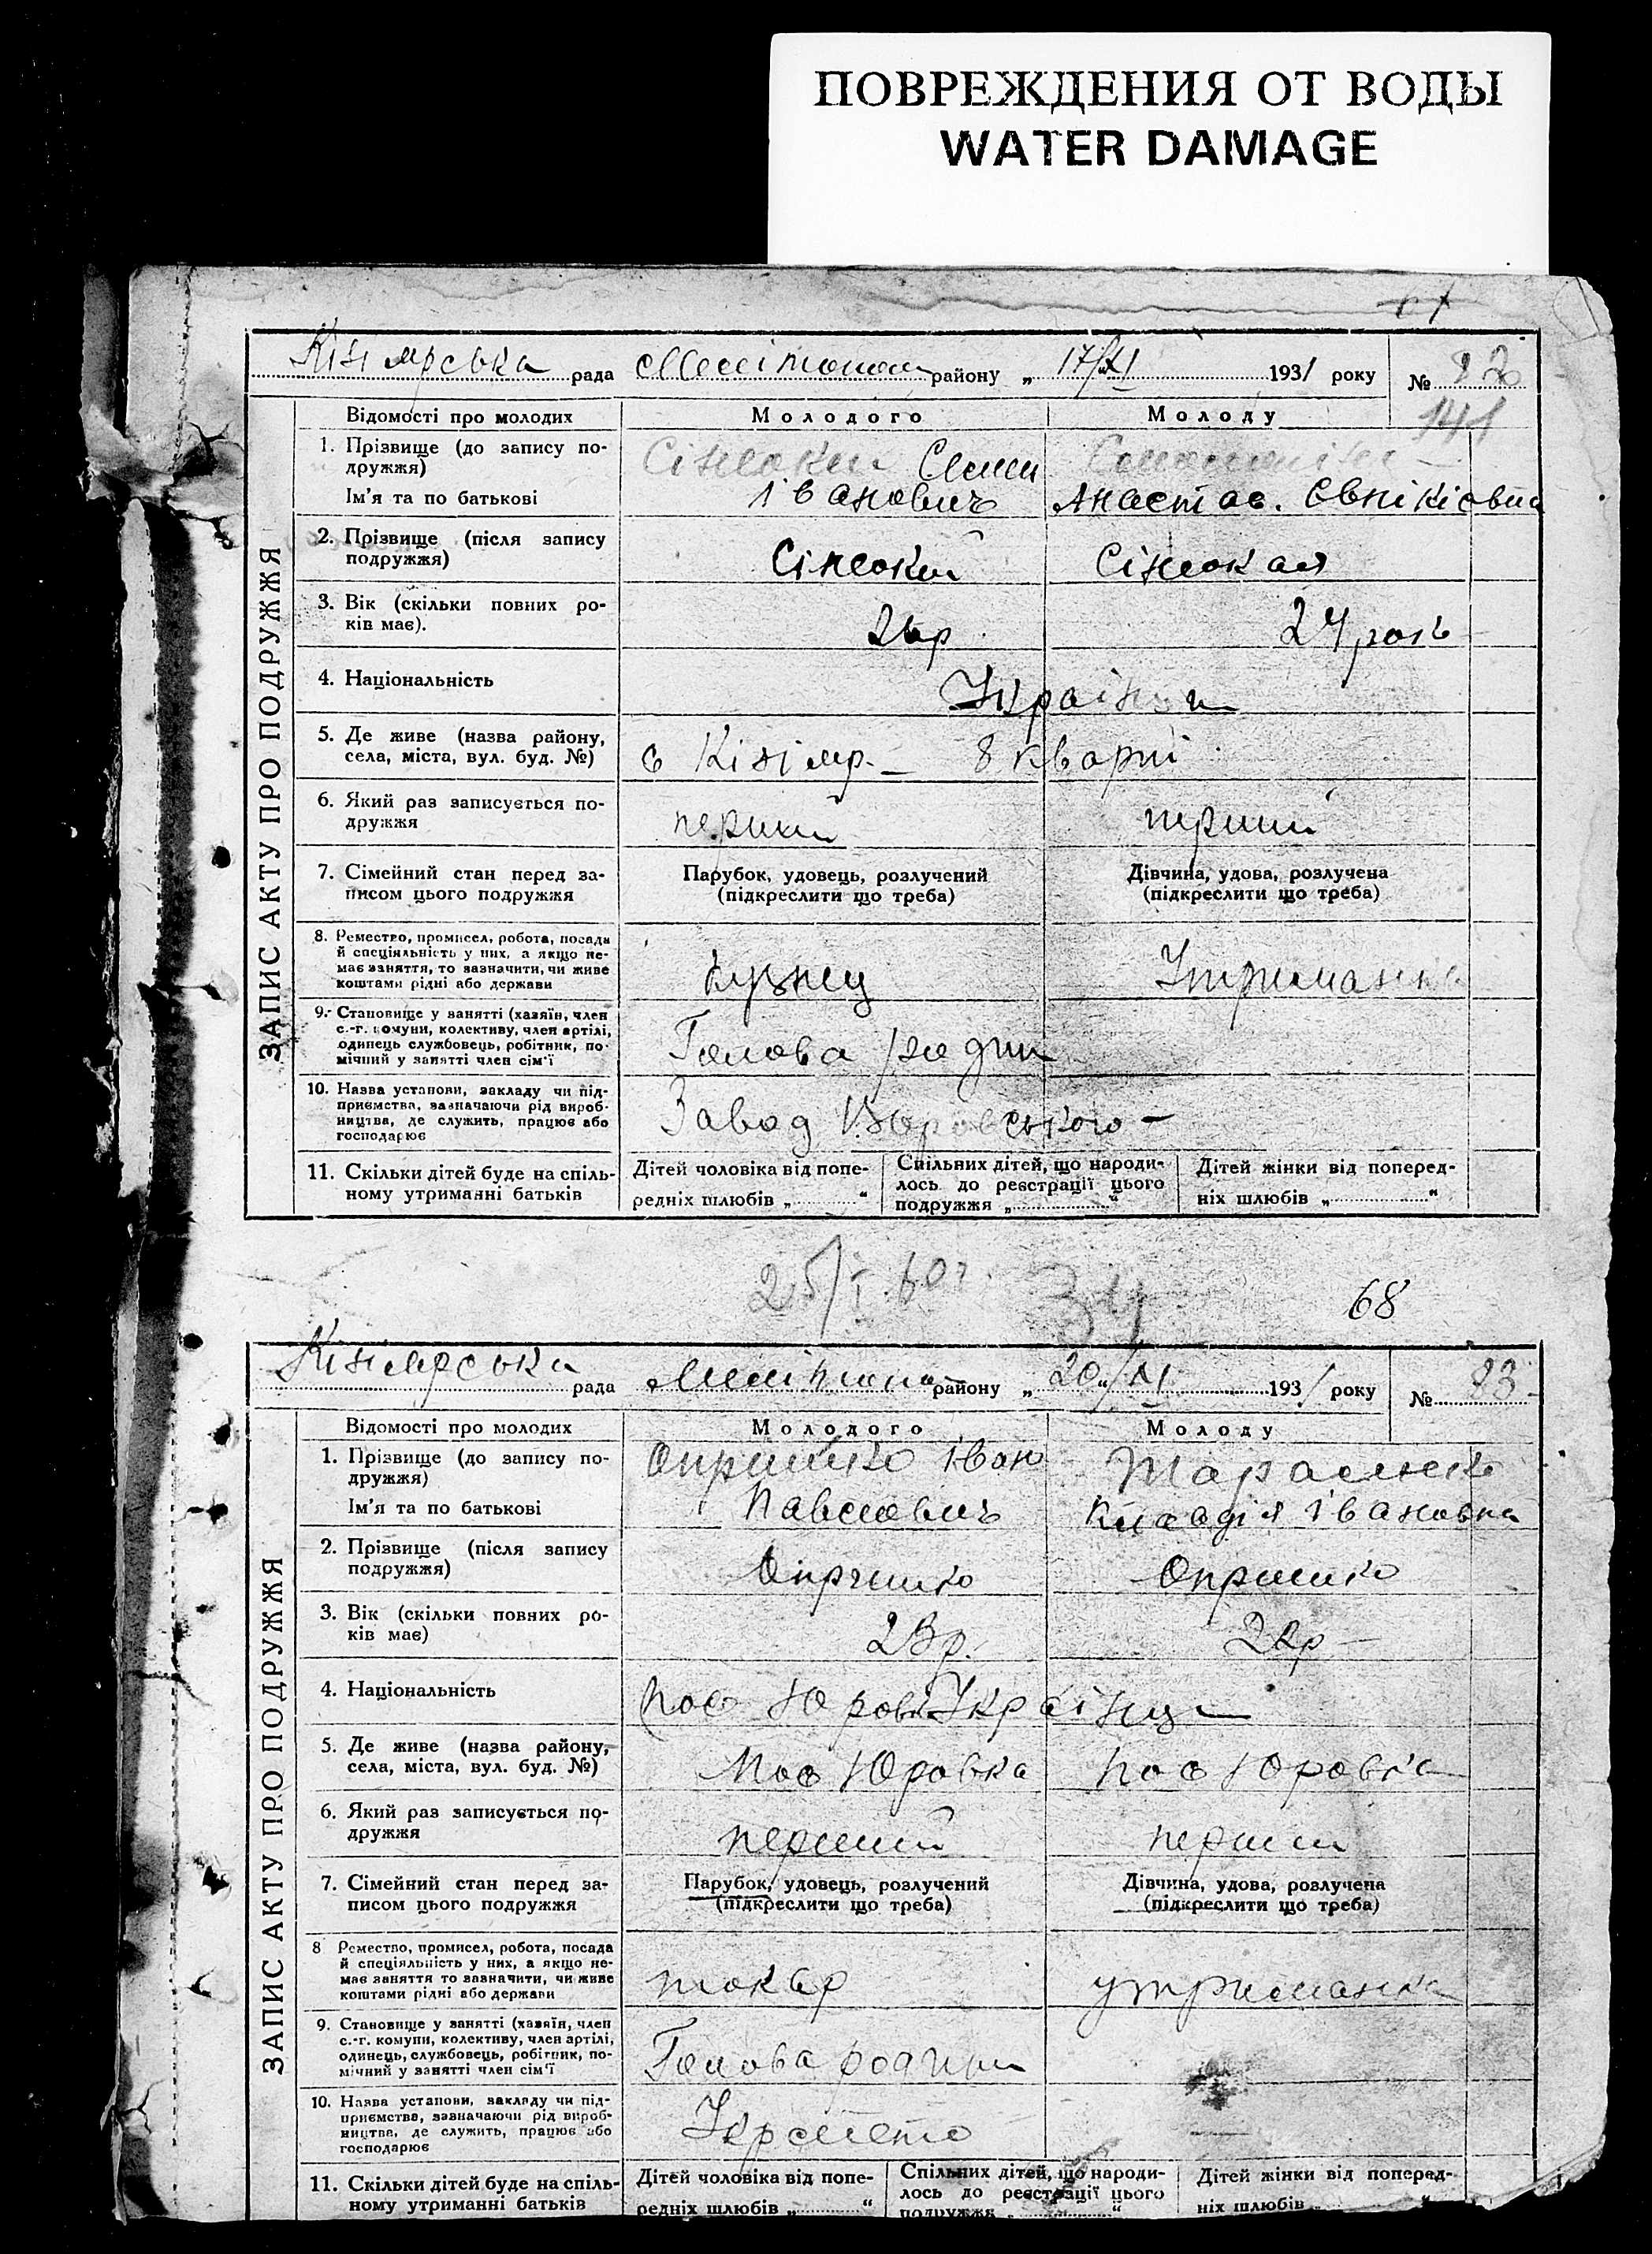 ПОВРЕЖДЕНИЯ ОТ ВОДЫ
WATER DAMAGE
Кізіярська рада Мелітопол району „ 17/XI 1931 року № 82
141
ЗАПИС АКТУ ПРО ПОДРУЖЖЯ
Відомості про молодих Молодого Молоду
1. Прізвище (до запису по-
дружжя)
Ім'я та по батькові
Сінеокий Семен
Іванович Анастас. Євнікієвна
2. Прізвище (після запису
подружжя)
Сінеокий Сінеокая
3. Вік (скільки повних ро-
ків має).
р 24 рок
4. Національність
Українц
5. Де живе (назва району,
села, міста, вул. буд. №)
с Кізіяр. – 8 кварт
6. Який раз записується по-
дружжя
перший перший
7. Сімейний стан перед за-
писом цього подружжя
Парубок, удовець, розлучений
(підкреслити що треба)
Дівчина, удова, розлучена
(підкреслити що треба)
8. Ремество, промисел, робота, посада
й спеціяльність у них, а якщо не-
має заняття, то зазначити, чи живе
коштами рідні або держави
кузнец Утриманка
9. Становище у занятті (хазяїн, член
с.-г. комуни, колективу, член артілі,
одинець службовець, робітник, по-
мічний у занятті член сім'ї
Голова родини
10. Назва установи, закладу чи під-
приємства, зазначаючи рід вироб-
ництва, де служить, працює або
господарює
Завод Воровського –
11. Скільки дітей буде на спіль-
ному утриманні батьків
Дітей чоловіка від попе-
редніх шлюбів „ “
Спільних дітей, що народи-
лось до реєстрації цього
подружжя „ “
Дітей жінки від поперед-
ніх шлюбів „ “
25/I 60г.
34
68
Кізіярська рада Мелітопол району „ 20/XI 1931 року № 83
ЗАПИС АКТУ ПРО ПОДРУЖЖЯ
Відомості про молодих Молодого Молоду
1. Прізвище (до запису по-
дружжя)
Ім'я та по батькові
Опришко Іван Тарасенко
Павлович Клавдія Івановна
2. Прізвище (після запису
подружжя)
Опришко Опришко
3. Вік (скільки повних ро-
ків має)
23 р. р –
4. Національність
пос Юровк Українці
5. Де живе (назва району,
села, міста, вул. буд. №)
Пос Юровка пос Юровка
6. Який раз записується по-
дружжя
перший перший
7. Сімейний стан перед за-
писом цього подружжя
Парубок, удовець, розлучений
(підкреслити що треба)
Дівчина, удова, розлучена
(підкреслити що треба)
8 Ремество, промисел, робота, посада
й спеціяльність у них, а якщо не-
має заняття то зазначити, чи живе
коштами рідні або держави
токар утриманка
9. Становище у занятті (хазяїн, член
с.-г. комуни, колективу, член артілі,
одинець, службовець, робітник, по-
мічний у занятті член сім'ї
Голова родини
10. Назва установи, закладу чи під-
приємства, зазначаючи рід вироб-
ництва, де служить, працює або
господарює
11. Скільки дітей буде на спіль-
ному утриманні батьків
Дітей чоловіка від попе-
редніх шлюбів „ “
Спільних дітей, що народи-
лось до реєстрації цього
подружжя „ “
Дітей жінки від поперед-
ніх шлюбів